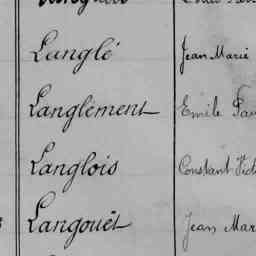 Langlé Jean Marie
Langlèment Emile
Langlois Constant
Langouët Jean Mar